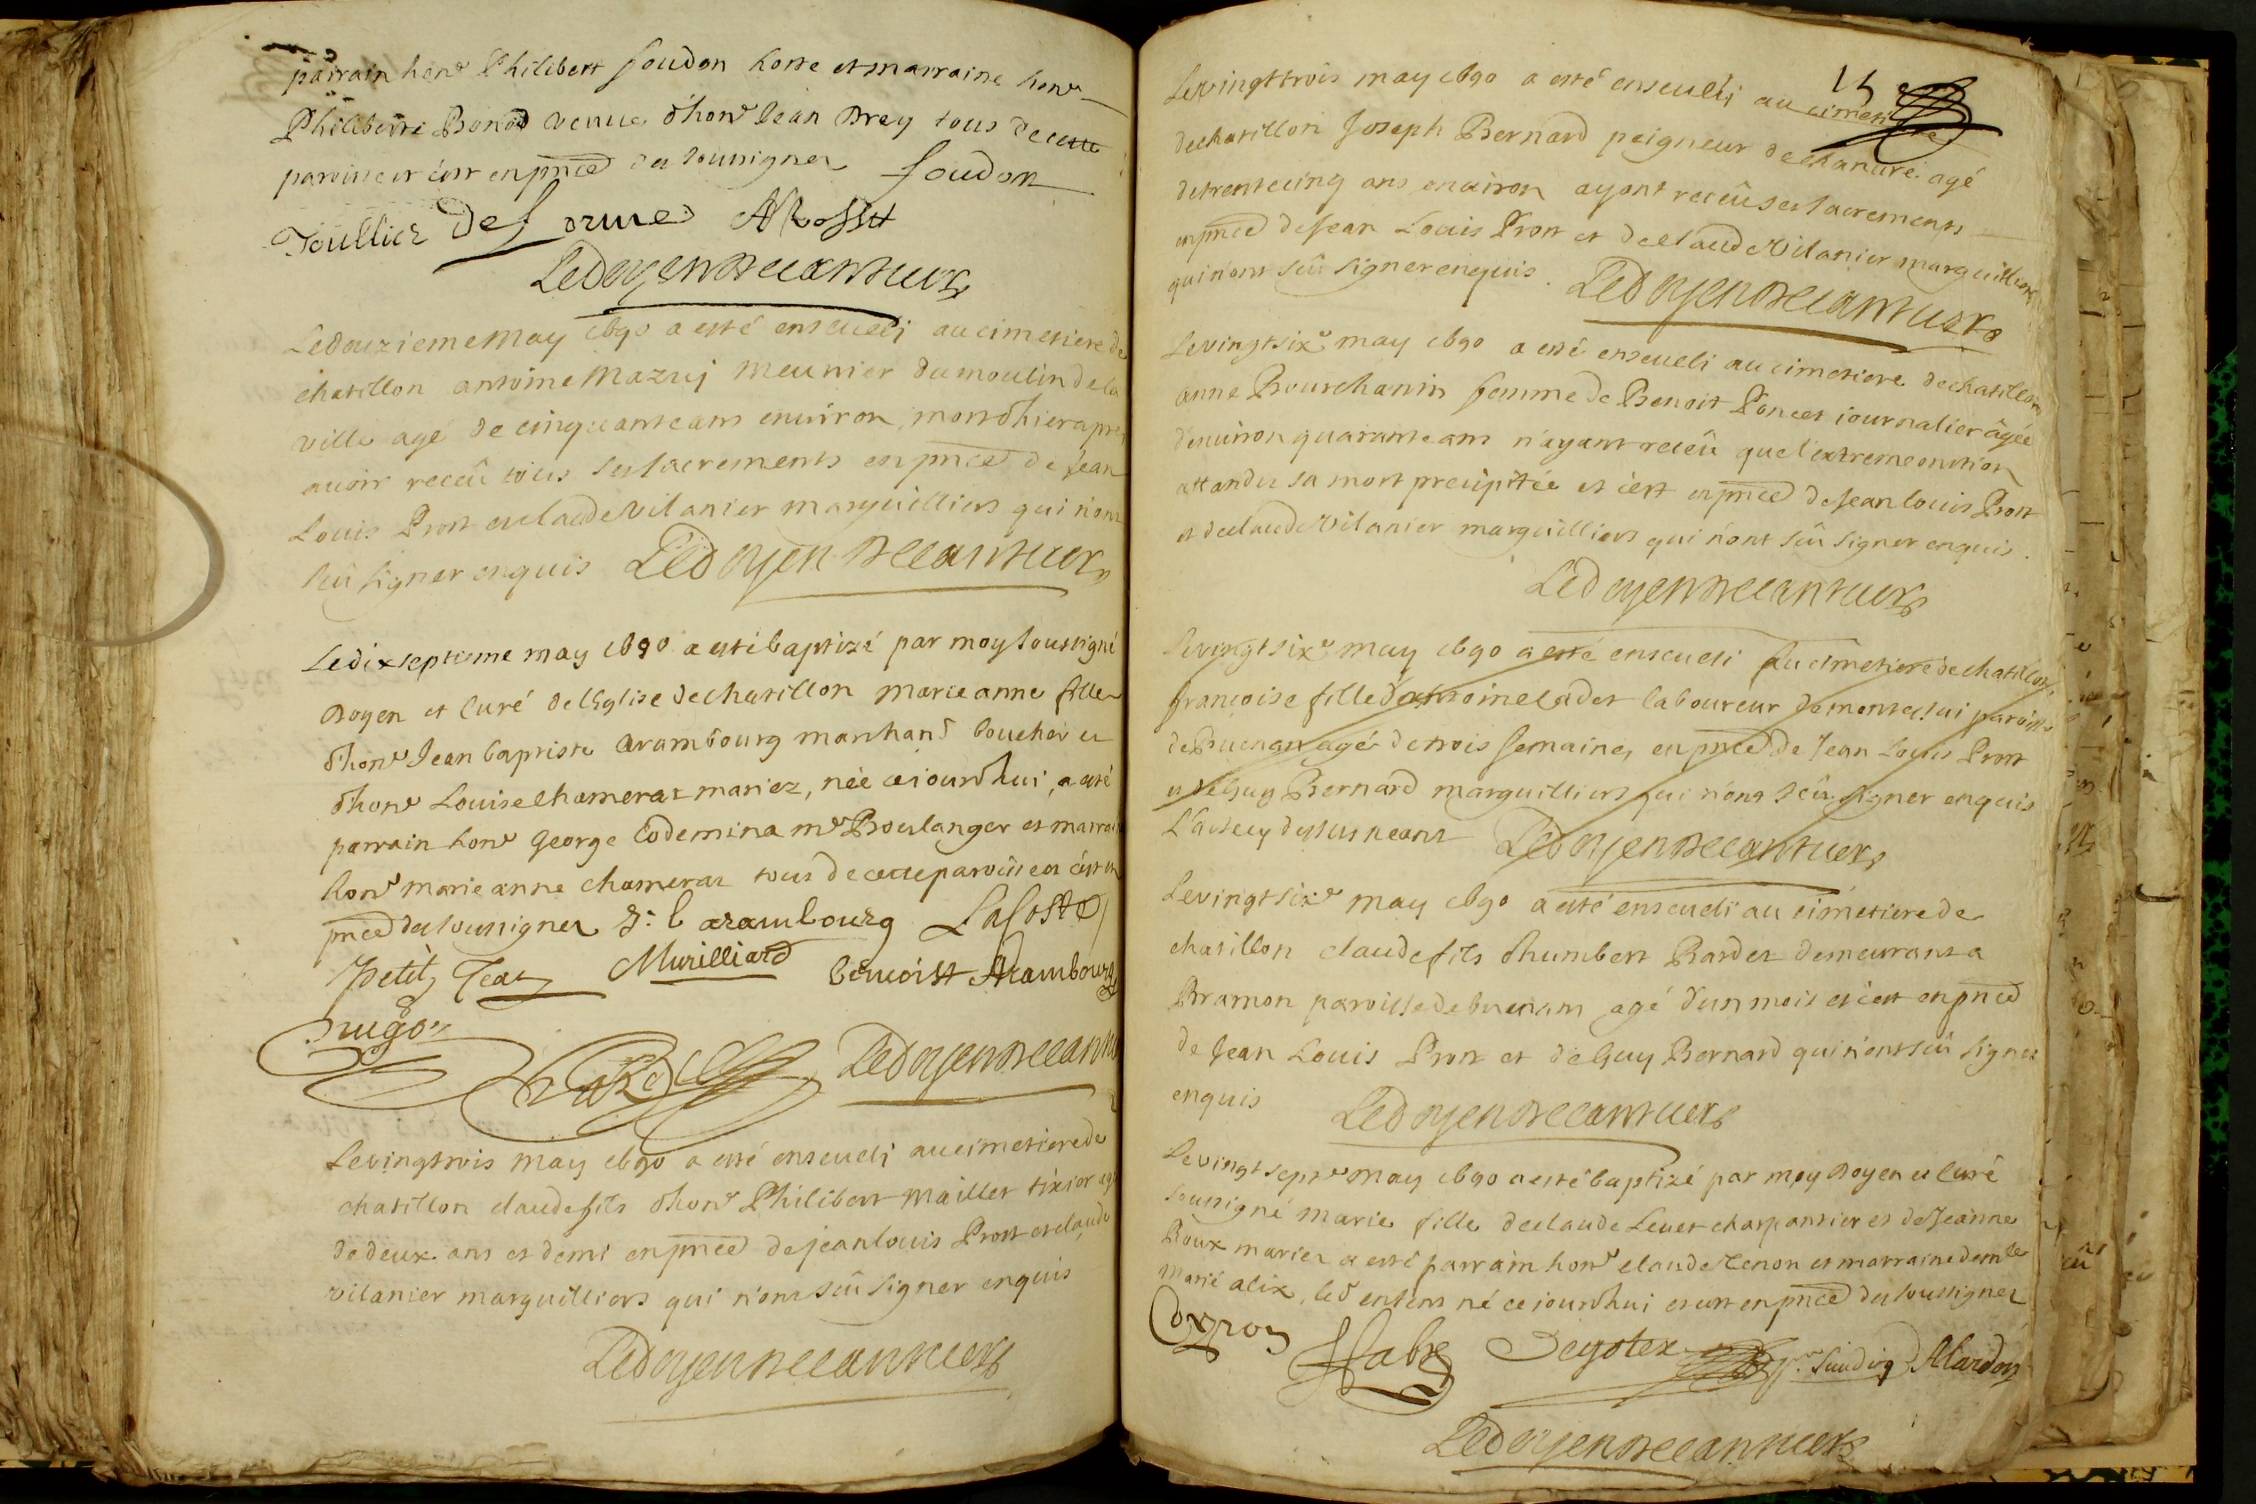 parrain hon^e Philibert foudon hoste et marraine hon^e
Philiberte Bonod veuue d'hon^e Jean Drey tous de cette
paroisse et c'est en pnce des soussignez foudon
Toullier Desormes ARosset
Ledoyen
Le douzieme May 1690 a esté enseueli au cimetiere de
chatillon antoine Mazuj Meunier du moulin de la
ville agé de cinquante ans enuiron, mort d'hier apres
auoir receû tous ses sacrements en pnce de Jean
Louis Prost et claude Vilanier marguilliers qui n'ont
sceû signer enquis Ledoyen
Le dix septieme may 1690 a esté baptizé par moy soussigné
Doyen et Curé de l'Eglise de chatillon marie anne fille
d'hon^e Jean baptiste arambourg marchand boucher et
d'hon^e Louise Chamerat mariez, née ce iourd'hui, a esté
parrain hon^e George Codemina m^e Boulanger et marrai
hon^e marie anne chamerat tous de cette paroisse et c'est en
pnce des soussignez J: b arambourg Lacoste
Petit Jean Murilliard benoist Arambourg
hugon
Ledoyen
Le vingt trois may 1690 a esté enseueli au cimetiere de
chatillon claude fils d'hon^e Philibert Maillet tixior agé
de deux ans et demi en pnce de jean louis Prost et claude
vilanier marguilliers qui n'ont sceû signer enquis
Ledoyen
15
Le vingt trois may 1690 a esté enseueli au cimetiere
de chatillon Joseph Bernard peigneur de chanure agé
de trente cinq ans enuiron ayant receû ses sacrements
en pnce de Jean Louis Prost et de claude Vilanier marguilliers
qui n'ont sceû signer enquis. Ledoyen
Le vingt six^e may 1690 a esté enseueli au cimetiere de chatillon
anne Bourchanin femme de Benoit Poncet iournalier âgée
d'enuiron quarante ans n'ayant receû que l'extreme onction
attandu sa mort precipitée et c'est en pnce de Jean louis Prost
et de claude Vilanier marguilliers qui n'ont sceû signer enquis.
Ledoyen
Le vingt six^e may 1690 a esté enseueli au cimetiere de chatillon
françoise fille d'antoine Cadet laboureur de paroisse
de Buenan agé de trois semaines, en pnce de Jean Louis Prost
et de Guy Bernard marguilliers qui n'ont sceû signer enquis
L'acte cy dessus neant Ledoyen
Le vingt six^e may 1690 a esté enseueli au cimetiere de
chatillon claude fils d'humbert Bardet demeurant a
Bramon paroisse de buenam agé d'un mois et c'est en pnce
de Jean Louis Prost et de Guy Bernard qui n'ont sceû signer
enquis Ledoyen
Le vingt sept^e may 1690 a esté baptizé par moy Doyen et Curé
soussigné marie fille de claude Leuet charpantier et de Jeanne
Roux mariez a esté parrain hon^e claude Tenon et marraine dem^le
marie alix, led enfant né ce iourd'hui et c'est en pnce des soussignez
Fabre Alardon
Ledoyen